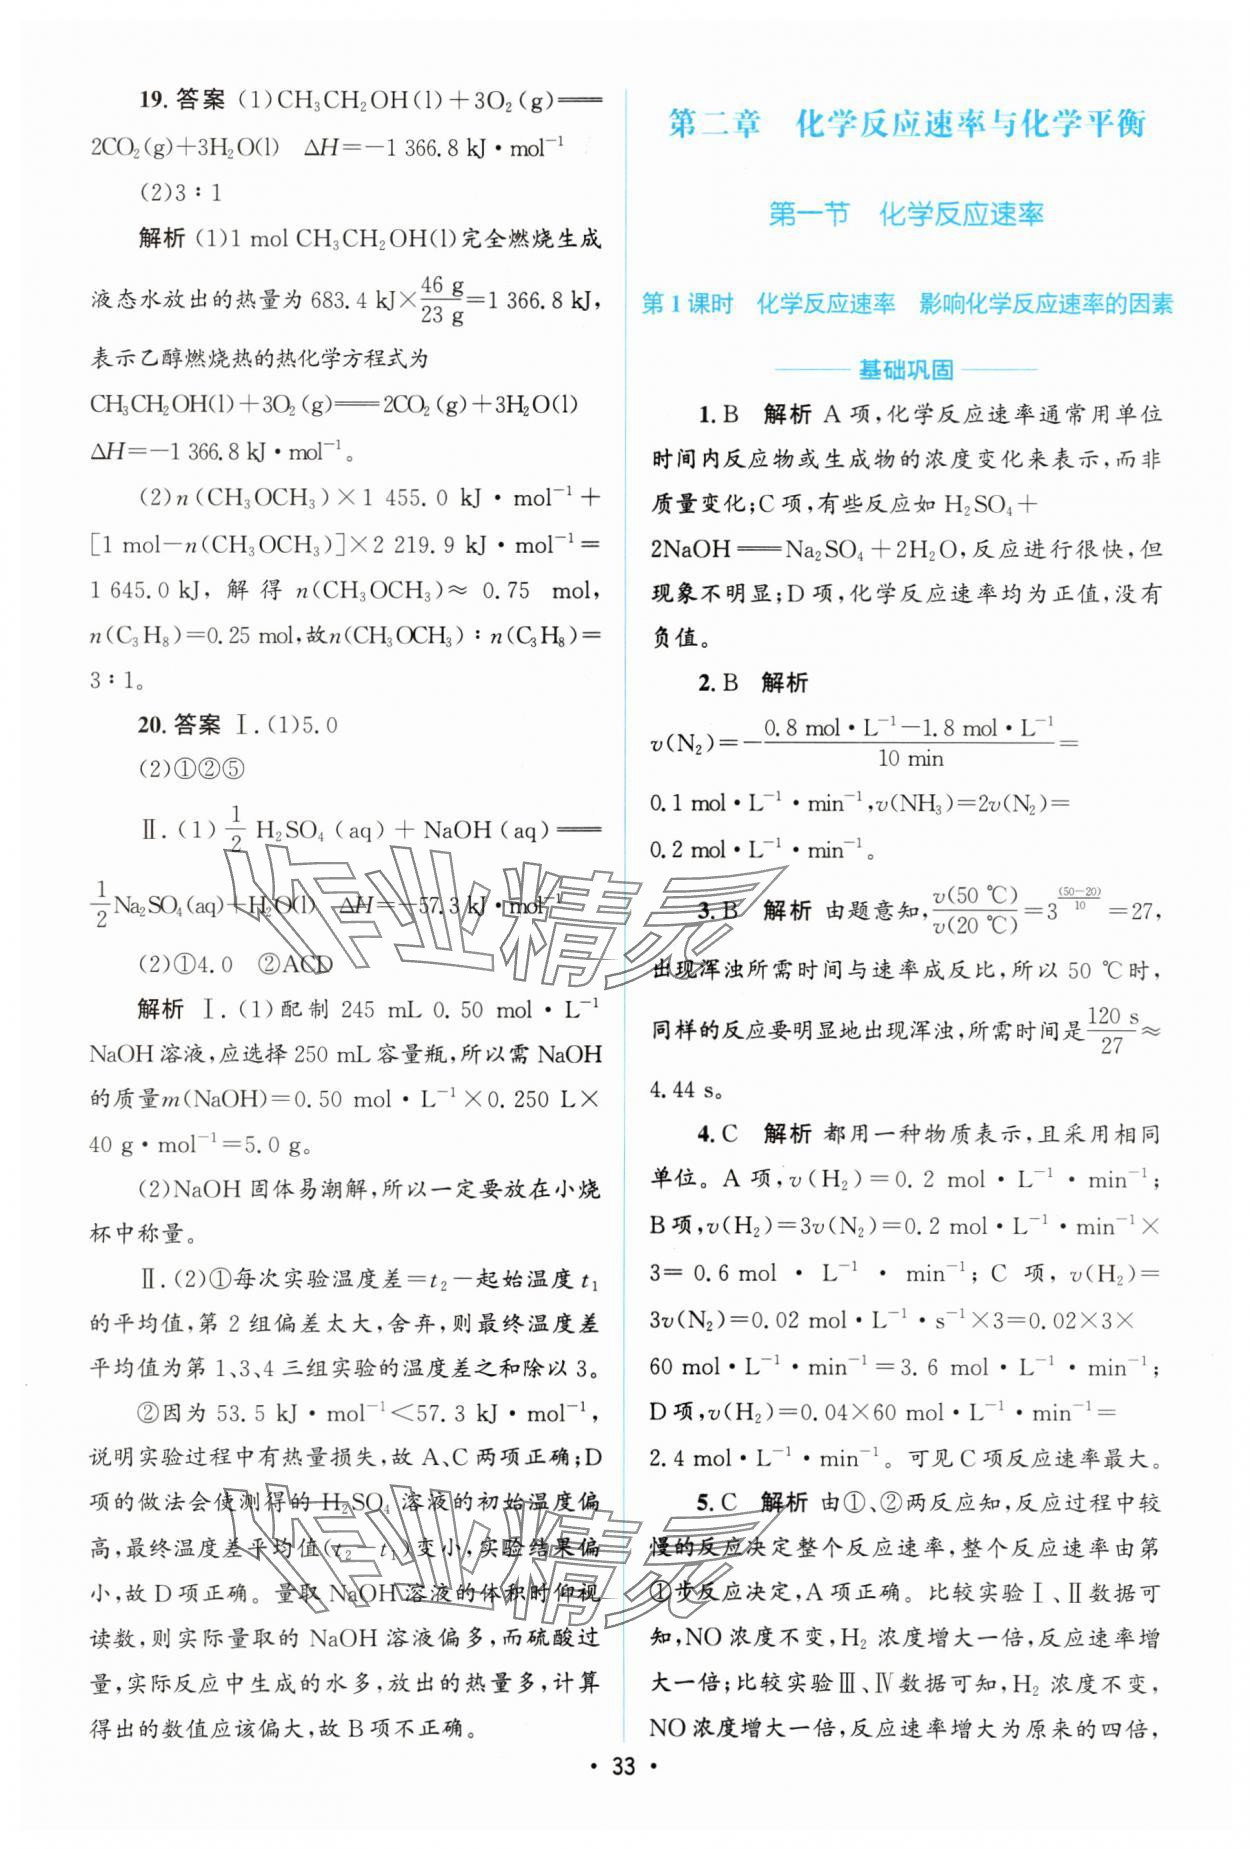 19. 答案 (1)CH₃CH₂OH(l)+3O₂(g)══
2CO₂(g)+3H₂O(l) ΔH=-1 366.8 kJ·mol⁻¹
(2)3∶1
解析 (1)1 mol CH₃CH₂OH(l)完全燃烧生成
液态水放出的热量为 683.4 kJ×46 g/23 g=1 366.8 kJ,
表示乙醇燃烧热的热化学方程式为
CH₃CH₂OH(l)+3O₂(g)══2CO₂(g)+3H₂O(l)
ΔH=-1 366.8 kJ·mol⁻¹。
(2)n(CH₃OCH₃)×1 455.0 kJ·mol⁻¹+
[1 mol-n(CH₃OCH₃)]×2 219.9 kJ·mol⁻¹=
1 645.0 kJ,解得 n(CH₃OCH₃)≈ 0.75 mol,
n(C₃H₈)=0.25 mol,故n(CH₃OCH₃)∶n(C₃H₈)=
3∶1。
20. 答案 Ⅰ.(1)5.0
(2)①②⑤
Ⅱ.(1)1/2 H₂SO₄(aq)+NaOH(aq)══
1/2Na₂SO₄(aq)+H₂O(l) ΔH=-57.3 kJ·mol⁻¹
(2)①4.0 ②ACD
解析 Ⅰ.(1)配制 245 mL 0.50 mol·L⁻¹
NaOH溶液,应选择 250 mL容量瓶,所以需 NaOH
的质量m(NaOH)=0.50 mol·L⁻¹×0.250 L×
40 g·mol⁻¹=5.0 g。
(2)NaOH固体易潮解,所以一定要放在小烧
杯中称量。
Ⅱ.(2)①每次实验温度差=t₂-起始温度t₁
的平均值,第 2 组偏差太大,舍弃,则最终温度差
平均值为第 1、3、4 三组实验的温度差之和除以 3。
②因为 53.5 kJ·mol⁻¹<57.3 kJ·mol⁻¹,
说明实验过程中有热量损失,故 A、C 两项正确;D
项的做法会使测得的 H₂SO₄ 溶液的初始温度偏
高,最终温度差平均值(t₂-t₁)变小,实验结果偏
小,故 D 项正确。量取 NaOH 溶液的体积时仰视
读数,则实际量取的 NaOH 溶液偏多,而硫酸过
量,实际反应中生成的水多,放出的热量多,计算
得出的数值应该偏大,故 B 项不正确。
第二章 化学反应速率与化学平衡
第一节 化学反应速率
第 1 课时 化学反应速率 影响化学反应速率的因素
基础巩固
1. B 解析 A 项,化学反应速率通常用单位
时间内反应物或生成物的浓度变化来表示,而非
质量变化;C 项,有些反应如 H₂SO₄+
2NaOH══Na₂SO₄+2H₂O,反应进行很快,但
现象不明显;D 项,化学反应速率均为正值,没有
负值。
2. B 解析
v(N₂)=-(0.8 mol·L⁻¹-1.8 mol·L⁻¹)/10 min=
0.1 mol·L⁻¹·min⁻¹,v(NH₃)=2v(N₂)=
0.2 mol·L⁻¹·min⁻¹。
3. B 解析 由题意知,v(50 ℃)/v(20 ℃)=3^((50-20)/10)=27,
出现浑浊所需时间与速率成反比,所以 50 ℃时,
同样的反应要明显地出现浑浊,所需时间是120 s/27≈
4.44 s。
4. C 解析 都用一种物质表示,且采用相同
单位。A 项,v(H₂)=0.2 mol·L⁻¹·min⁻¹;
B 项,v(H₂)=3v(N₂)=0.2 mol·L⁻¹·min⁻¹×
3= 0.6 mol · L⁻¹ · min⁻¹;C 项,v(H₂)=
3v(N₂)=0.02 mol·L⁻¹·s⁻¹×3=0.02×3×
60 mol·L⁻¹·min⁻¹=3.6 mol·L⁻¹·min⁻¹;
D 项,v(H₂)=0.04×60 mol·L⁻¹·min⁻¹=
2.4 mol·L⁻¹·min⁻¹。可见 C 项反应速率最大。
5. C 解析 由①、②两反应知,反应过程中较
慢的反应决定整个反应速率,整个反应速率由第
①步反应决定,A 项正确。比较实验Ⅰ、Ⅱ数据可
知,NO 浓度不变,H₂ 浓度增大一倍,反应速率增
大一倍;比较实验Ⅲ、Ⅳ数据可知,H₂ 浓度不变,
NO浓度增大一倍,反应速率增大为原来的四倍,
作业精灵
作业精灵
· 33 ·